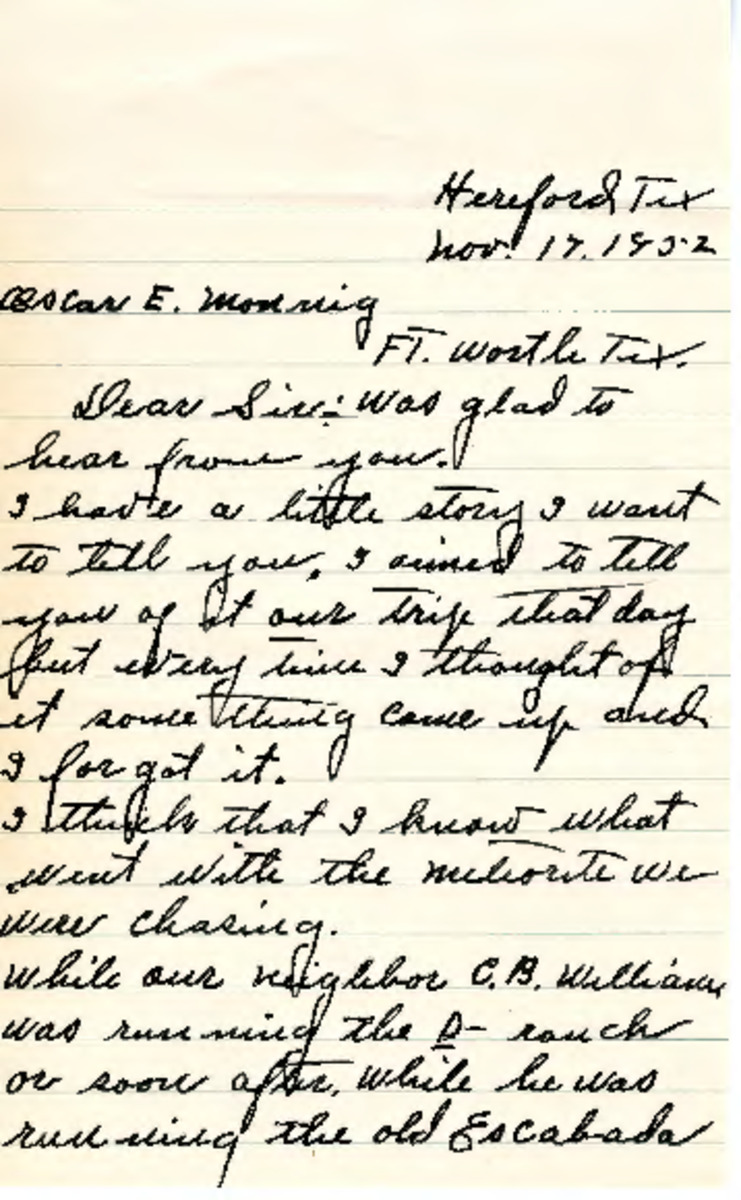 Hereford Tex
Nov. 17. 1952
Oscar E. Monnig
FT. Worth Tex.
Dear Sir: was glad to
hear from you.
I have a little story I want
to tell you, I aimed to tell
you of it our trip that day
but every time I thought of
it some thing come up and
I forgot it.
I think that I know what
went with the meteorite we
were chasing.
While our neighbor C.B. Williams
was running the D- ranch
or soon after, while he was
running the old Escabada